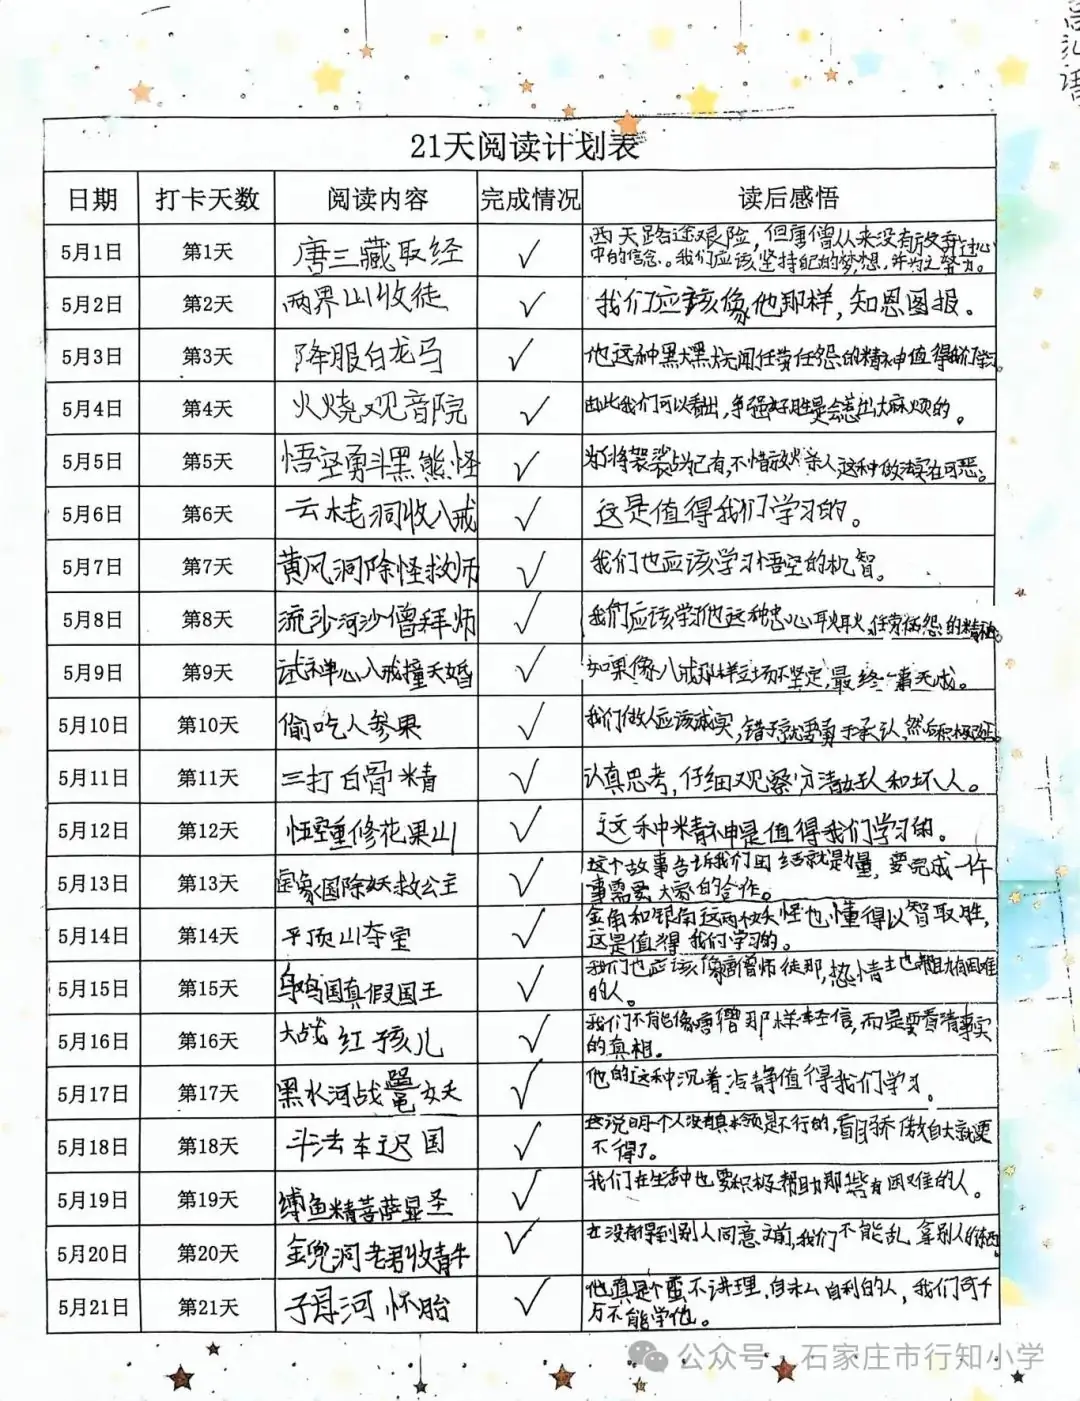 21天阅读计划表
日期 打卡天数 阅读内容 完成情况 读后感悟
5月1日 第1天 唐三藏取经 ✓ 西天路途艰险，但唐僧从来没有放弃过心
中的信念。我们应该坚持自己的梦想，并为之努力。
5月2日 第2天 两界山收徒 ✓ 我们应该像他那样，知恩图报。
5月3日 第3天 降服白龙马 ✓ 他这种默默无闻任劳任怨的精神值得我们学习。
5月4日 第4天 火烧观音院 ✓ 由此我们可以看出，争强好胜是会惹出大麻烦的。
5月5日 第5天 悟空勇斗黑熊怪 ✓ 为了将袈裟占为己有，不惜放火杀人，这种做法实在可恶。
5月6日 第6天 云栈洞收八戒 ✓ 这是值得我们学习的。
5月7日 第7天 黄风洞除怪救师 ✓ 我们也应该学习悟空的机智。
5月8日 第8天 流沙河沙僧拜师 ✓ 我们应该学习他这种忠心耿耿，任劳任怨的精神。
5月9日 第9天 试禅心八戒撞天婚 ✓ 如果像八戒那样立场不坚定，最终一事无成。
5月10日 第10天 偷吃人参果 ✓ 我们做人应该诚实，错了就要勇于承认，然后积极改正。
5月11日 第11天 三打白骨精 ✓ 认真思考，仔细观察，分清好人和坏人。
5月12日 第12天 悟空重修花果山 ✓ 这种精神是值得我们学习的。
5月13日 第13天 宝象国除妖救公主 ✓ 这个故事告诉我们团结就是力量，要完成一件
事需要大家的合作。
5月14日 第14天 平顶山夺宝 ✓ 金角和银角这两个妖怪也懂得以智取胜，
这是值得我们学习的。
5月15日 第15天 乌鸡国真假国王 ✓ 我们也应该像唐僧师徒那，热情主也帮助有困难
的人。
5月16日 第16天 大战红孩儿 ✓ 我们不能像唐僧那样轻信，而是要看清事实
的真相。
5月17日 第17天 黑水河战鼍妖 ✓ 他的这种沉着冷静值得我们学习。
5月18日 第18天 斗法车迟国 ✓ 这说明一个人没有真本领是不行的，盲目骄傲自大就更
不得了。
5月19日 第19天 缚鱼精菩萨显圣 ✓ 我们在生活中也要积极帮助那些有困难的人。
5月20日 第20天 金兜洞老君收青牛 ✓ 在没有得到别人同意之前，我们不能乱拿别人的东西。
5月21日 第21天 子母河怀胎 ✓ 他真是个蛮不讲理，自私自利的人，我们可千
万不能学他。
公众号·石家庄市行知小学